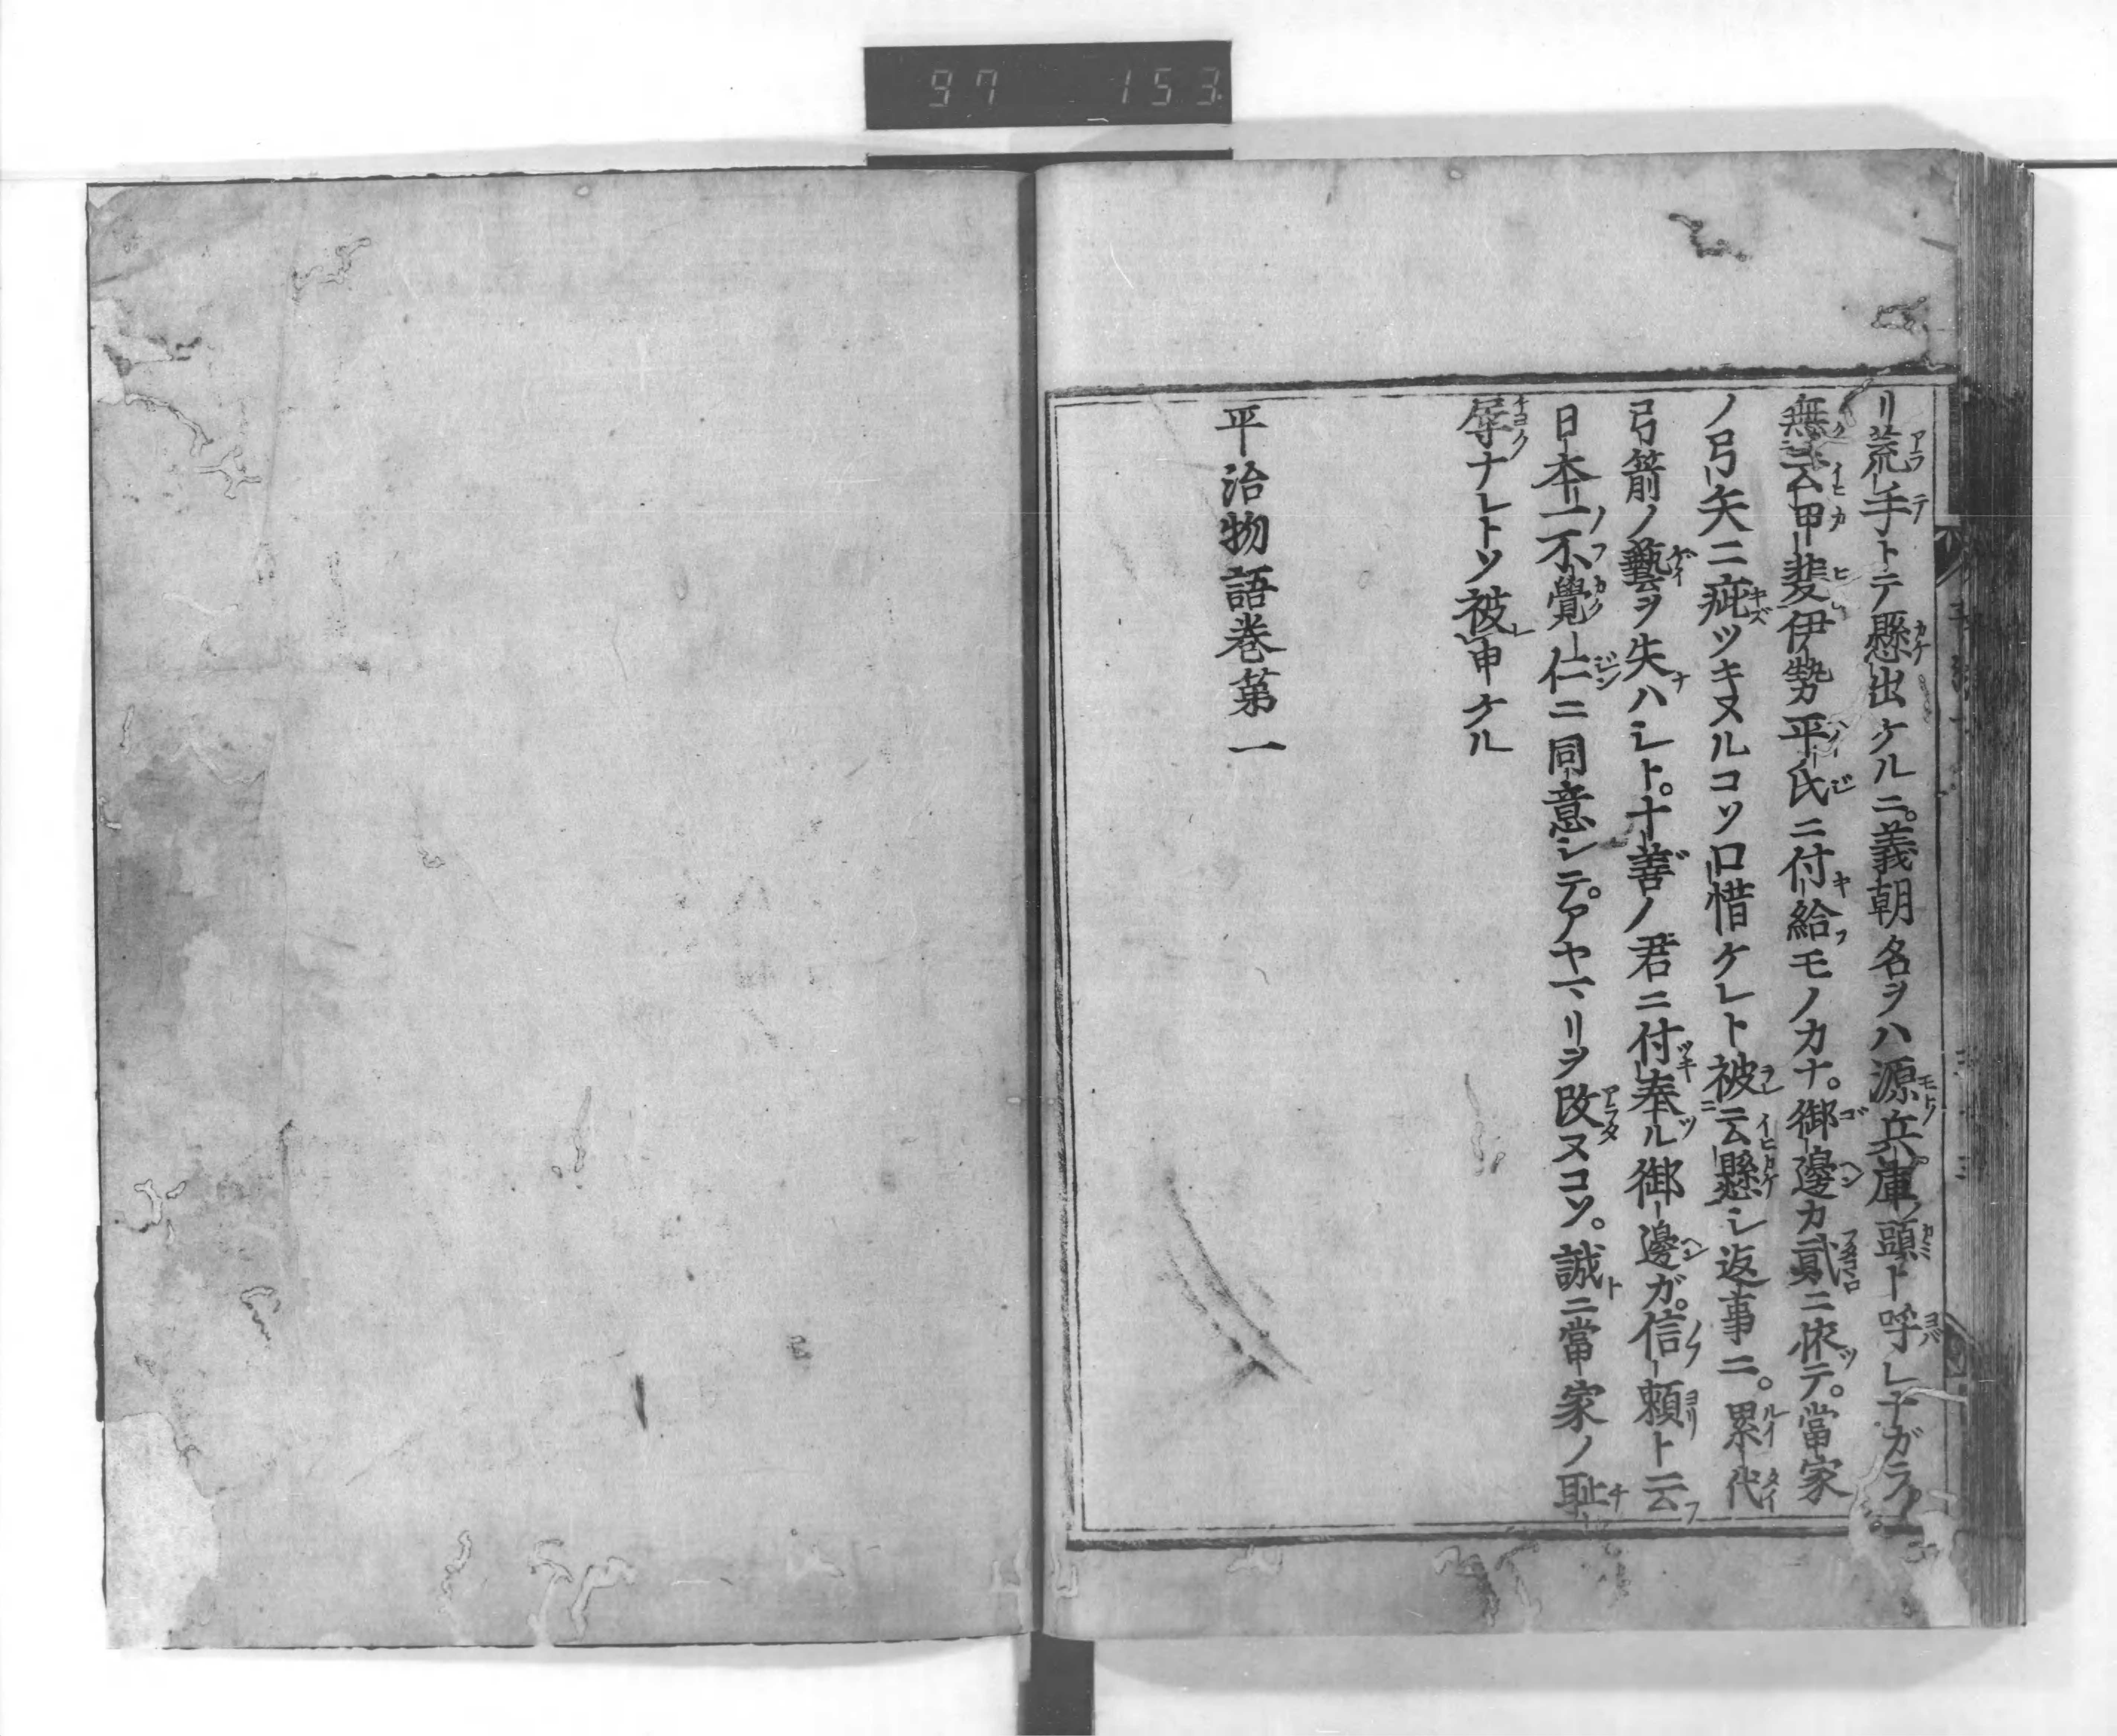 97 153
リ荒手トテ懸出ケルニ。義朝名ヲハ源兵庫頭ト呼レナガラ。
無云甲斐伊勢平氏ニ付給モノカナ。御邊カ貳ニ依テ。當家
ノ弓矢ニ疵ツキヌルコソ口惜ケレト被云懸シ返事ニ。累代
弓箭ノ藝ヲ失ハシト。十善ノ君ニ付奉ル御邊ガ。信頼ト云
日本一不覺仁ニ同意シテ。アヤマリヲ改ヌコソ。誠ニ當家ノ耻
辱ナレトソ被申ケル
平治物語巻第一